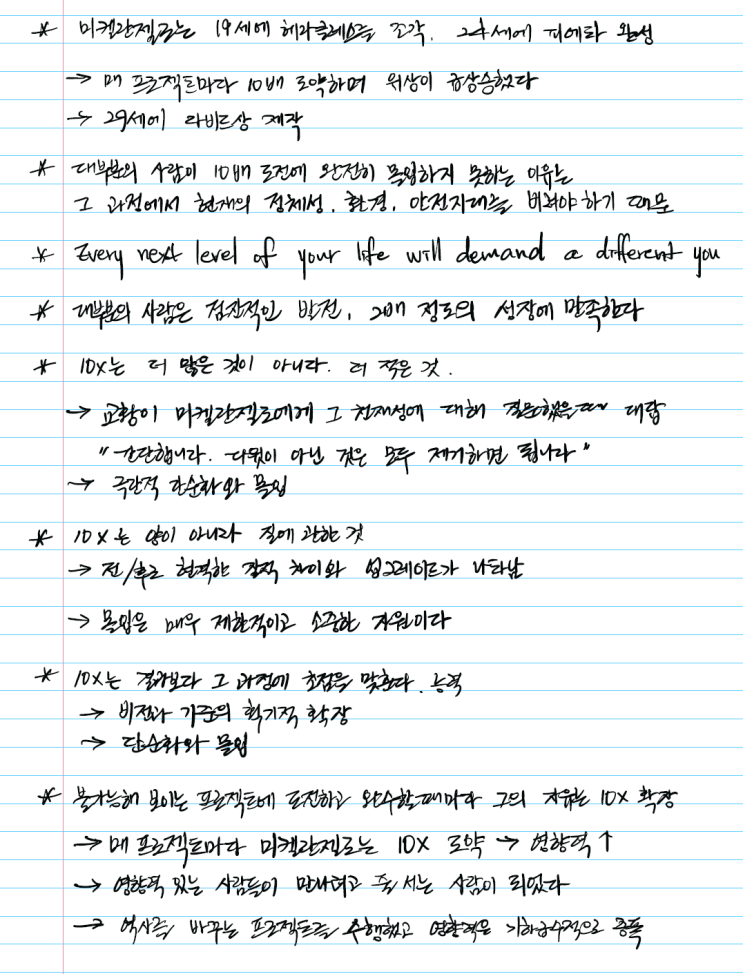 * 미켈란젤로는 19세에 헤라클레스를 조각. 24세에 피에타 완성
→ 매 프로젝트마다 10배 도약하며 위상이 급상승했다
→ 29세에 다비드상 제작
* 대부분의 사람이 10배 도전에 완전히 몰입하지 못하는 이유는
그 과정에서 현재의 정체성, 환경, 안전지대를 버려야 하기 때문
* Every next level of your life will demand a different you
* 대부분의 사람은 점진적인 발전, 2배 정도의 성장에 만족한다
* 10x는 더 많은 것이 아니다. 더 적은 것.
→ 교황이 미켈란젤로에게 그 천재성에 대해 질문했을 때 대답
"간단합니다. 다윗이 아닌 것은 모두 제거하면 됩니다"
→ 극단적 단순화와 몰입
* 10x는 양이 아니라 질에 관한 것
→ 전/후로 현격한 질적 차이와 업그레이드가 나타남
→ 몰입은 매우 제한적이고 소중한 자원이다
* 10x는 결과보다 그 과정에 초점을 맞춘다. 능력
→ 비전과 기준의 획기적 확장
→ 단순화와 몰입
* 불가능해 보이는 프로젝트에 도전하고 완수할때마다 그의 자유는 10x 확장
→ 매 프로젝트마다 미켈란젤로는 10x 도약 → 영향력 ↑
→ 영향력 있는 사람들이 만나려고 줄 서는 사람이 되었다
→ 역사를 바꾸는 프로젝트를 수행했고 영향력은 기하급수적으로 증폭